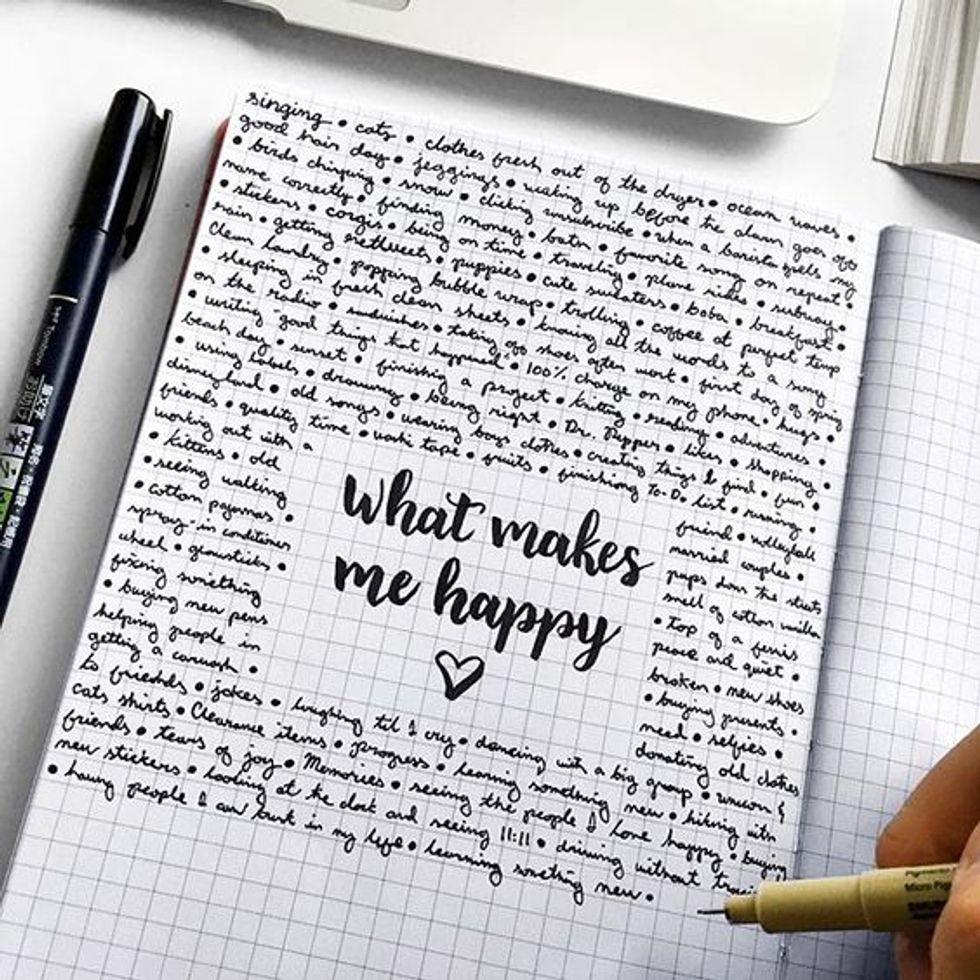 singing • cats • clothes fresh out of the dryer • ocean waves •
good hair day • jeggings • waking up before the alarm goes off
• birds chirping • snow • clicking unsubscribe • when a barista spells my
name correctly • finding money • bath • favorite song on repeat •
• stickers • corgis • being on time • traveling • plane rides • subway •
rain • getting retweets • puppies • cute sweaters • boba • breakfast •
clean laundry • popping bubble wrap • trolling • coffee at perfect temp
• sleeping in fresh clean sheets • knowing all the words to a song
on the radio • sandwiches • taking off shoes after work • first day of spring
• writing "good things that happened" • 100% charge on my phone • hugs •
beach day • sunset • finishing a project • knitting • reading • adventures •
• using labels • drawing • being right • Dr. Pepper • likes • shopping •
disneyland • old songs • wearing boys clothes • creating things I find • fun •
friends • quality time • washi tape • fruits • finishing To-Do list • running •
working out with a friend • volleyball
• kittens • old married couples •
• seeing walking pups down the streets
• cotton pajamas • smell of cotton vanilla
spray-in conditioner • top of a ferris
wheel • glowsticks • peace and quiet •
fixing something broken • new shoes
• buying new pens • buying presents •
helping people in need • selfies •
getting a carwash • donating old clothes
What makes
me happy
to friends • jokes • laughing til I cry • dancing with a big group • unicorn &
cats shirts • Clearance items • progress • learning something new • hiking with
friends • tears of joy • Memories • seeing the people I love happy • buying
new stickers • looking at the clock and seeing 11:11 • driving without
• having people I can trust in my life • learning something new •
Tombow